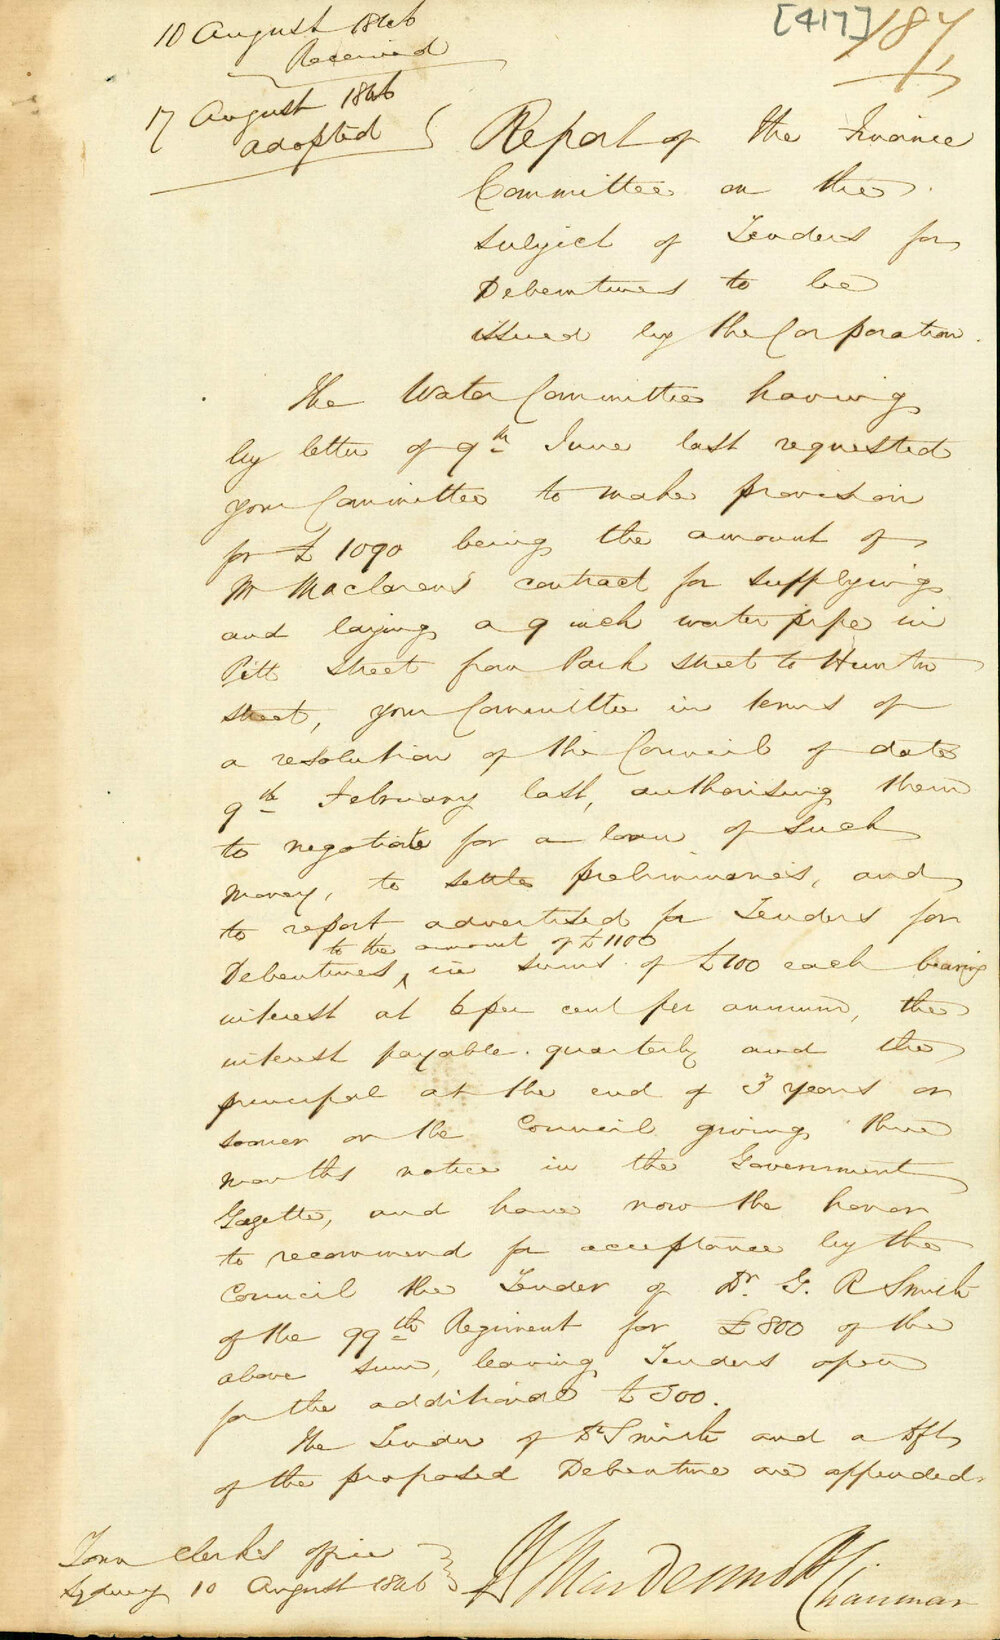 10 August 1846
Received
17 August 1846
adopted
[417]
187
Report of the Finance
Committee on the
subject of Tenders for
Debentures to be
issued by the Corporation.
The Water Committee having
by letter of 9th June last requested
your Committee to make provision
for £1090 being the amount of
Mr Maclarens contract for supplying
and laying a 9 inch water pipe in
Pitt Street from Park Street to Hunter
Street, your Committee in terms of
a resolution of the Council of date
9th February last, authorising them
to negotiate for a loan of such
money, to settle preliminaries, and
to report advertised for Tenders for
to the amount of £1100
Debentures, ^ in sums of £100 each bearing
interest at 6 per cent per annum, the
interest payable quarterly and the
principal at the end of 3 years or
sooner on the Council giving three
months notice in the Government
Gazette, and have now the honor
to recommend for acceptance by the
Council the Tender of Dr. G. R Smith
of the 99th Regiment for £800 of the
above sum, leaving Tenders open
for the additional £300.
The Tender of Dr Smith and a Dft
of the proposed Debenture are appended.
Town Clerk's office
Sydney 10 August 1846
Chairman